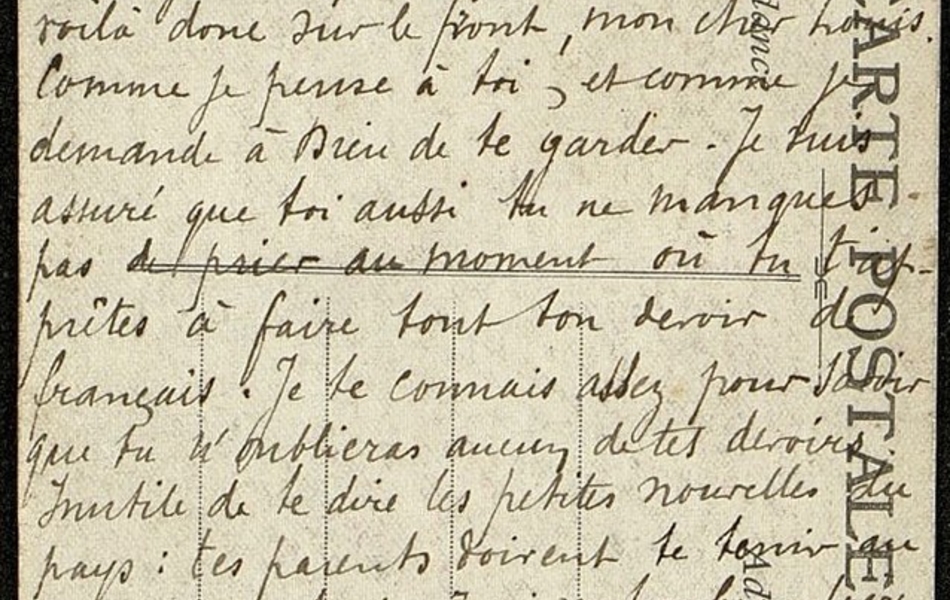 voilà donc sur le front, mon cher Louis.
Comme je pense à toi, et comme je
demande à Dieu de te garder. Je suis
assuré que toi aussi tu ne manques
pas de prier au moment où tu t'ap-
prêtes à faire tout ton devoir de
français. Je te connais assez pour savoir
que tu n'oublieras aucun de tes devoirs.
Inutile de te dire les petites nouvelles du
pays : tes parents doivent te tenir au
CARTE POSTALE